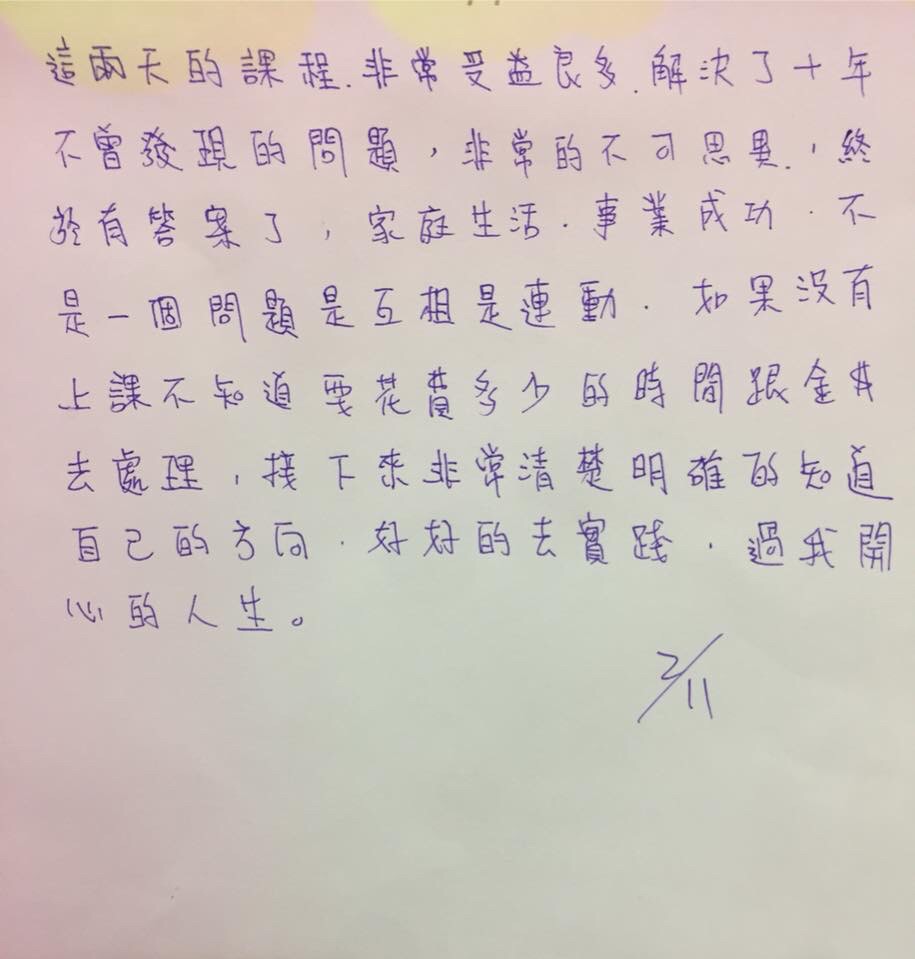 這兩天的課程.非常受益良多.解決了十年
不曾發現的問題，非常的不可思異.，終
於有答案了，家庭生活.事業成功.不
是一個問題是互相是連動.如果沒有
上課不知道要花費多少的時間跟金井
去處理，接下來非常清楚明確的知道
自己的方向.好好的去實踐，過我開
心的人生。
2/11